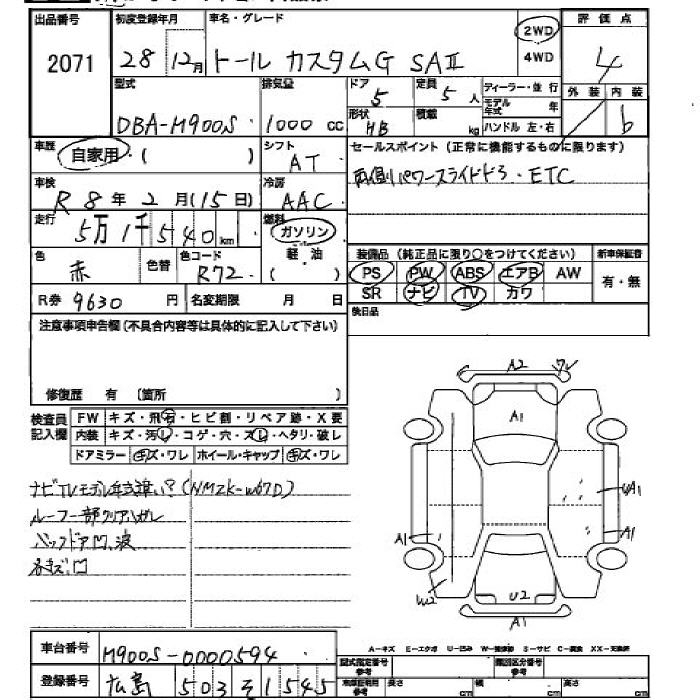 出品番号 2071
初度登録年月 28 12月
車名・グレード トール カスタムG SAⅡ
2WD 4WD
評価点 4
外装 内装 6
型式 DBA-M900S
排気量 1000 cc
ドア 5 定員 5人
形状 HB 積載 kg
ディーラー・並行
モデル年式 年
ハンドル 左・右
車歴 自家用 ( )
シフト AT
セールスポイント (正常に機能するものに限ります)
両側パワースライドドア・ETC
車検 R8年2月(15日)
冷房 AAC
走行 5万1千540km
燃料 ガソリン 軽油 ( )
色 赤 色替 色コード R72
装備品 (純正品に限り○をつけてください) 新車保証書
PS PW ABS エアB AW 有・無
SR ナビ TV カワ
R券 9630円 名変期限 月 日
後日品
注意事項申告欄 (不具合内容等は具体的に記入して下さい)
修復歴 有 〔箇所 〕
検査員記入欄
FW キズ・飛石・ヒビ割・リペア跡・X要
内装 キズ・汚レ・コゲ・穴・ズレ・ヘタリ・破レ
ドアミラー キズ・ワレ ホイール・キャップ キズ・ワレ
ナビTVモデル年式違い?(NMZK-W67D)
ルーフ一部クリアハガレ
バックドア凹、波
各キズ、凹
A2
A1
A1
A1
A1
W2
U2
A1
車台番号 M900S-0000594
登録番号 広島 503 そ 1545
A-キズ E-エクボ U-凹み S-サビ C-腐食 XX-交換済
型式指定番号 参考 類別区分番号 参考
長さ cm 幅 cm 高さ cm